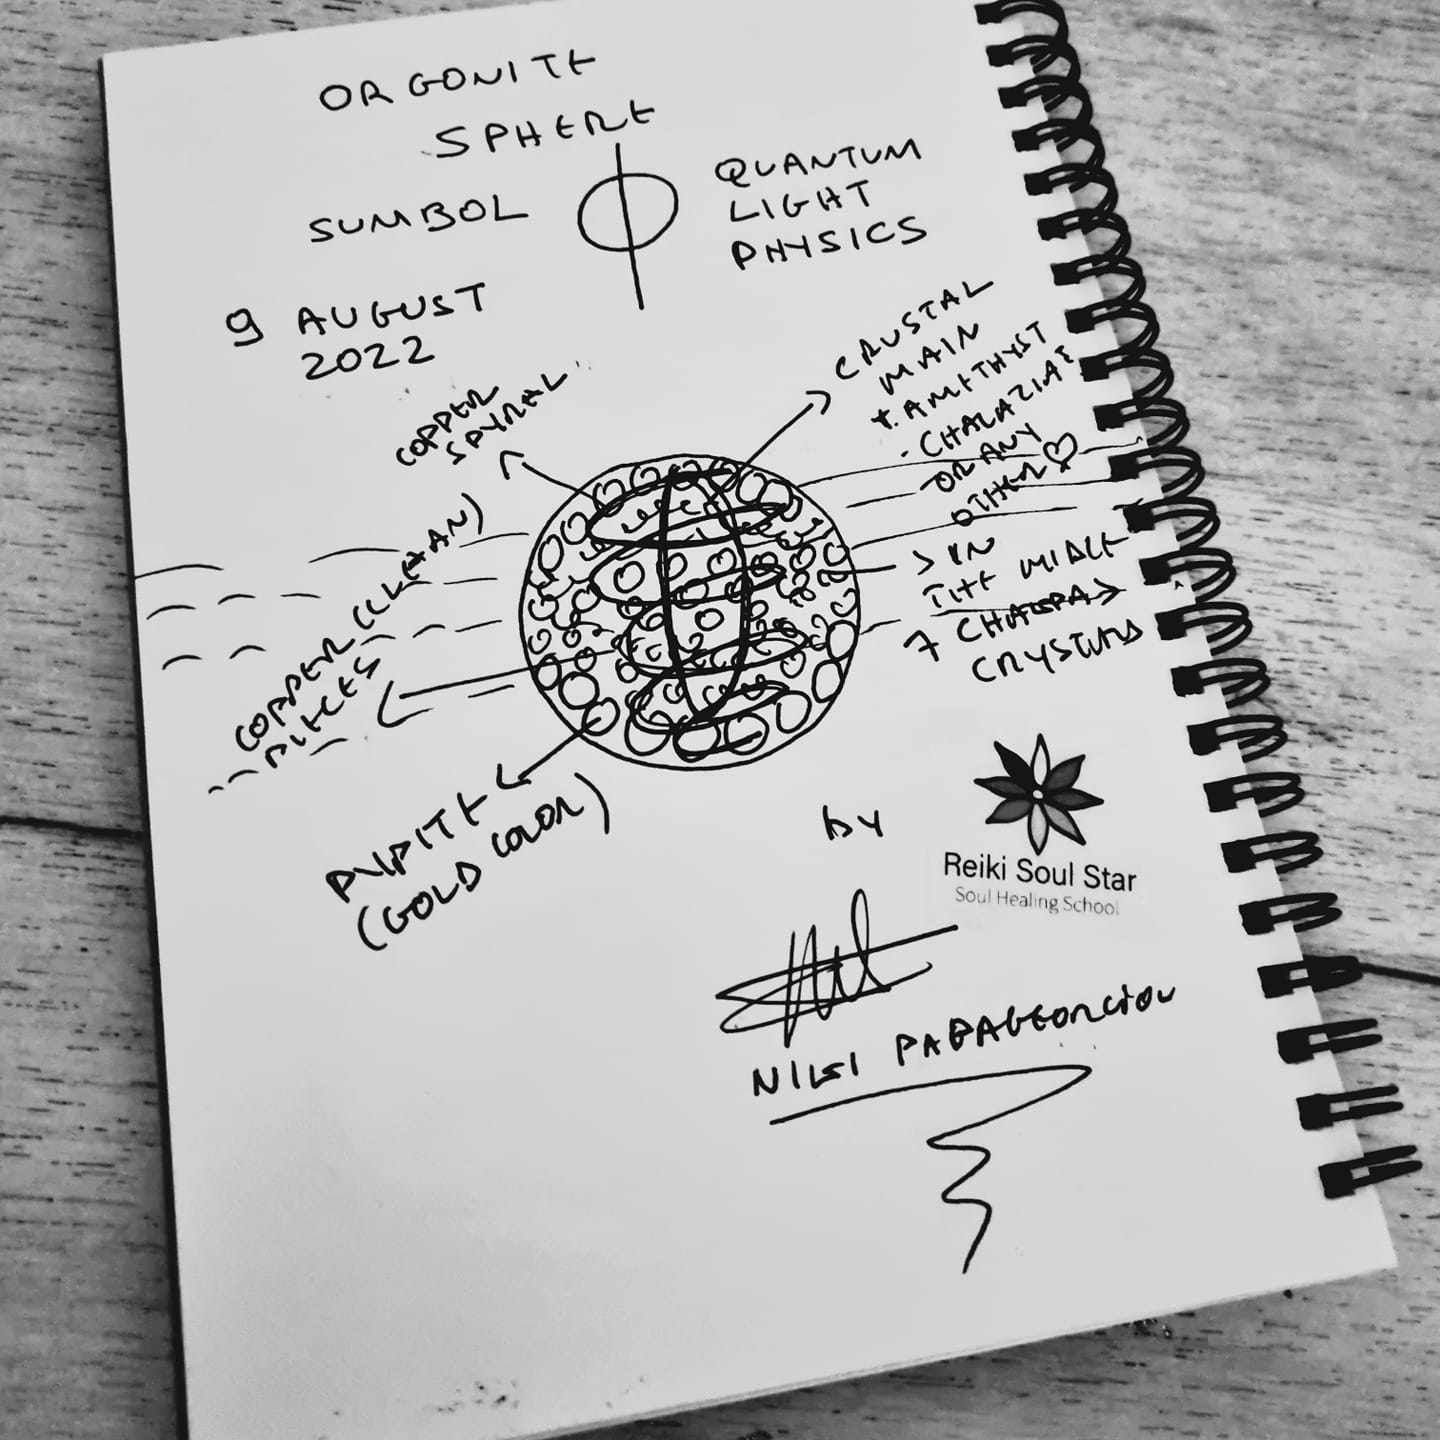 ORGONITE
SPHERE
SUMBOL
QUANTUM
LIGHT
PHYSICS
9 AUGUST
2022
COPPER
SPYRAL
CRUSTAL
MAIN
+. AMETHYST
- CHALAZIAS
OR ANY
OTHER
COPPER (CLEAN)
PIECES
IN
THE MIDLE
7 CHAKRA
CRYSTALS
PYRITE
(GOLD COLOR)
by
Reiki Soul Star
Soul Healing School
NIKI PAPAGEORGIOU